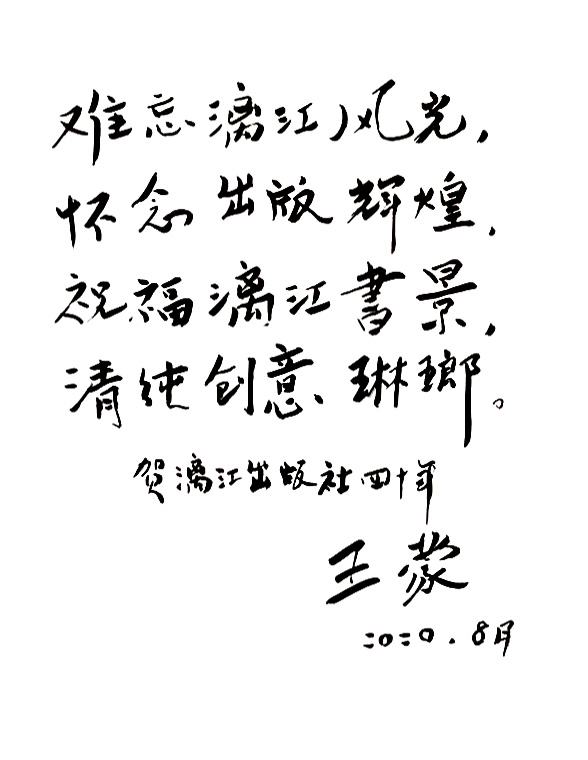 难忘漓江风光，
怀念出版辉煌，
祝福漓江書景，
清纯创意琳瑯。
贺漓江出版社四十年
王蒙
二〇二〇.8月